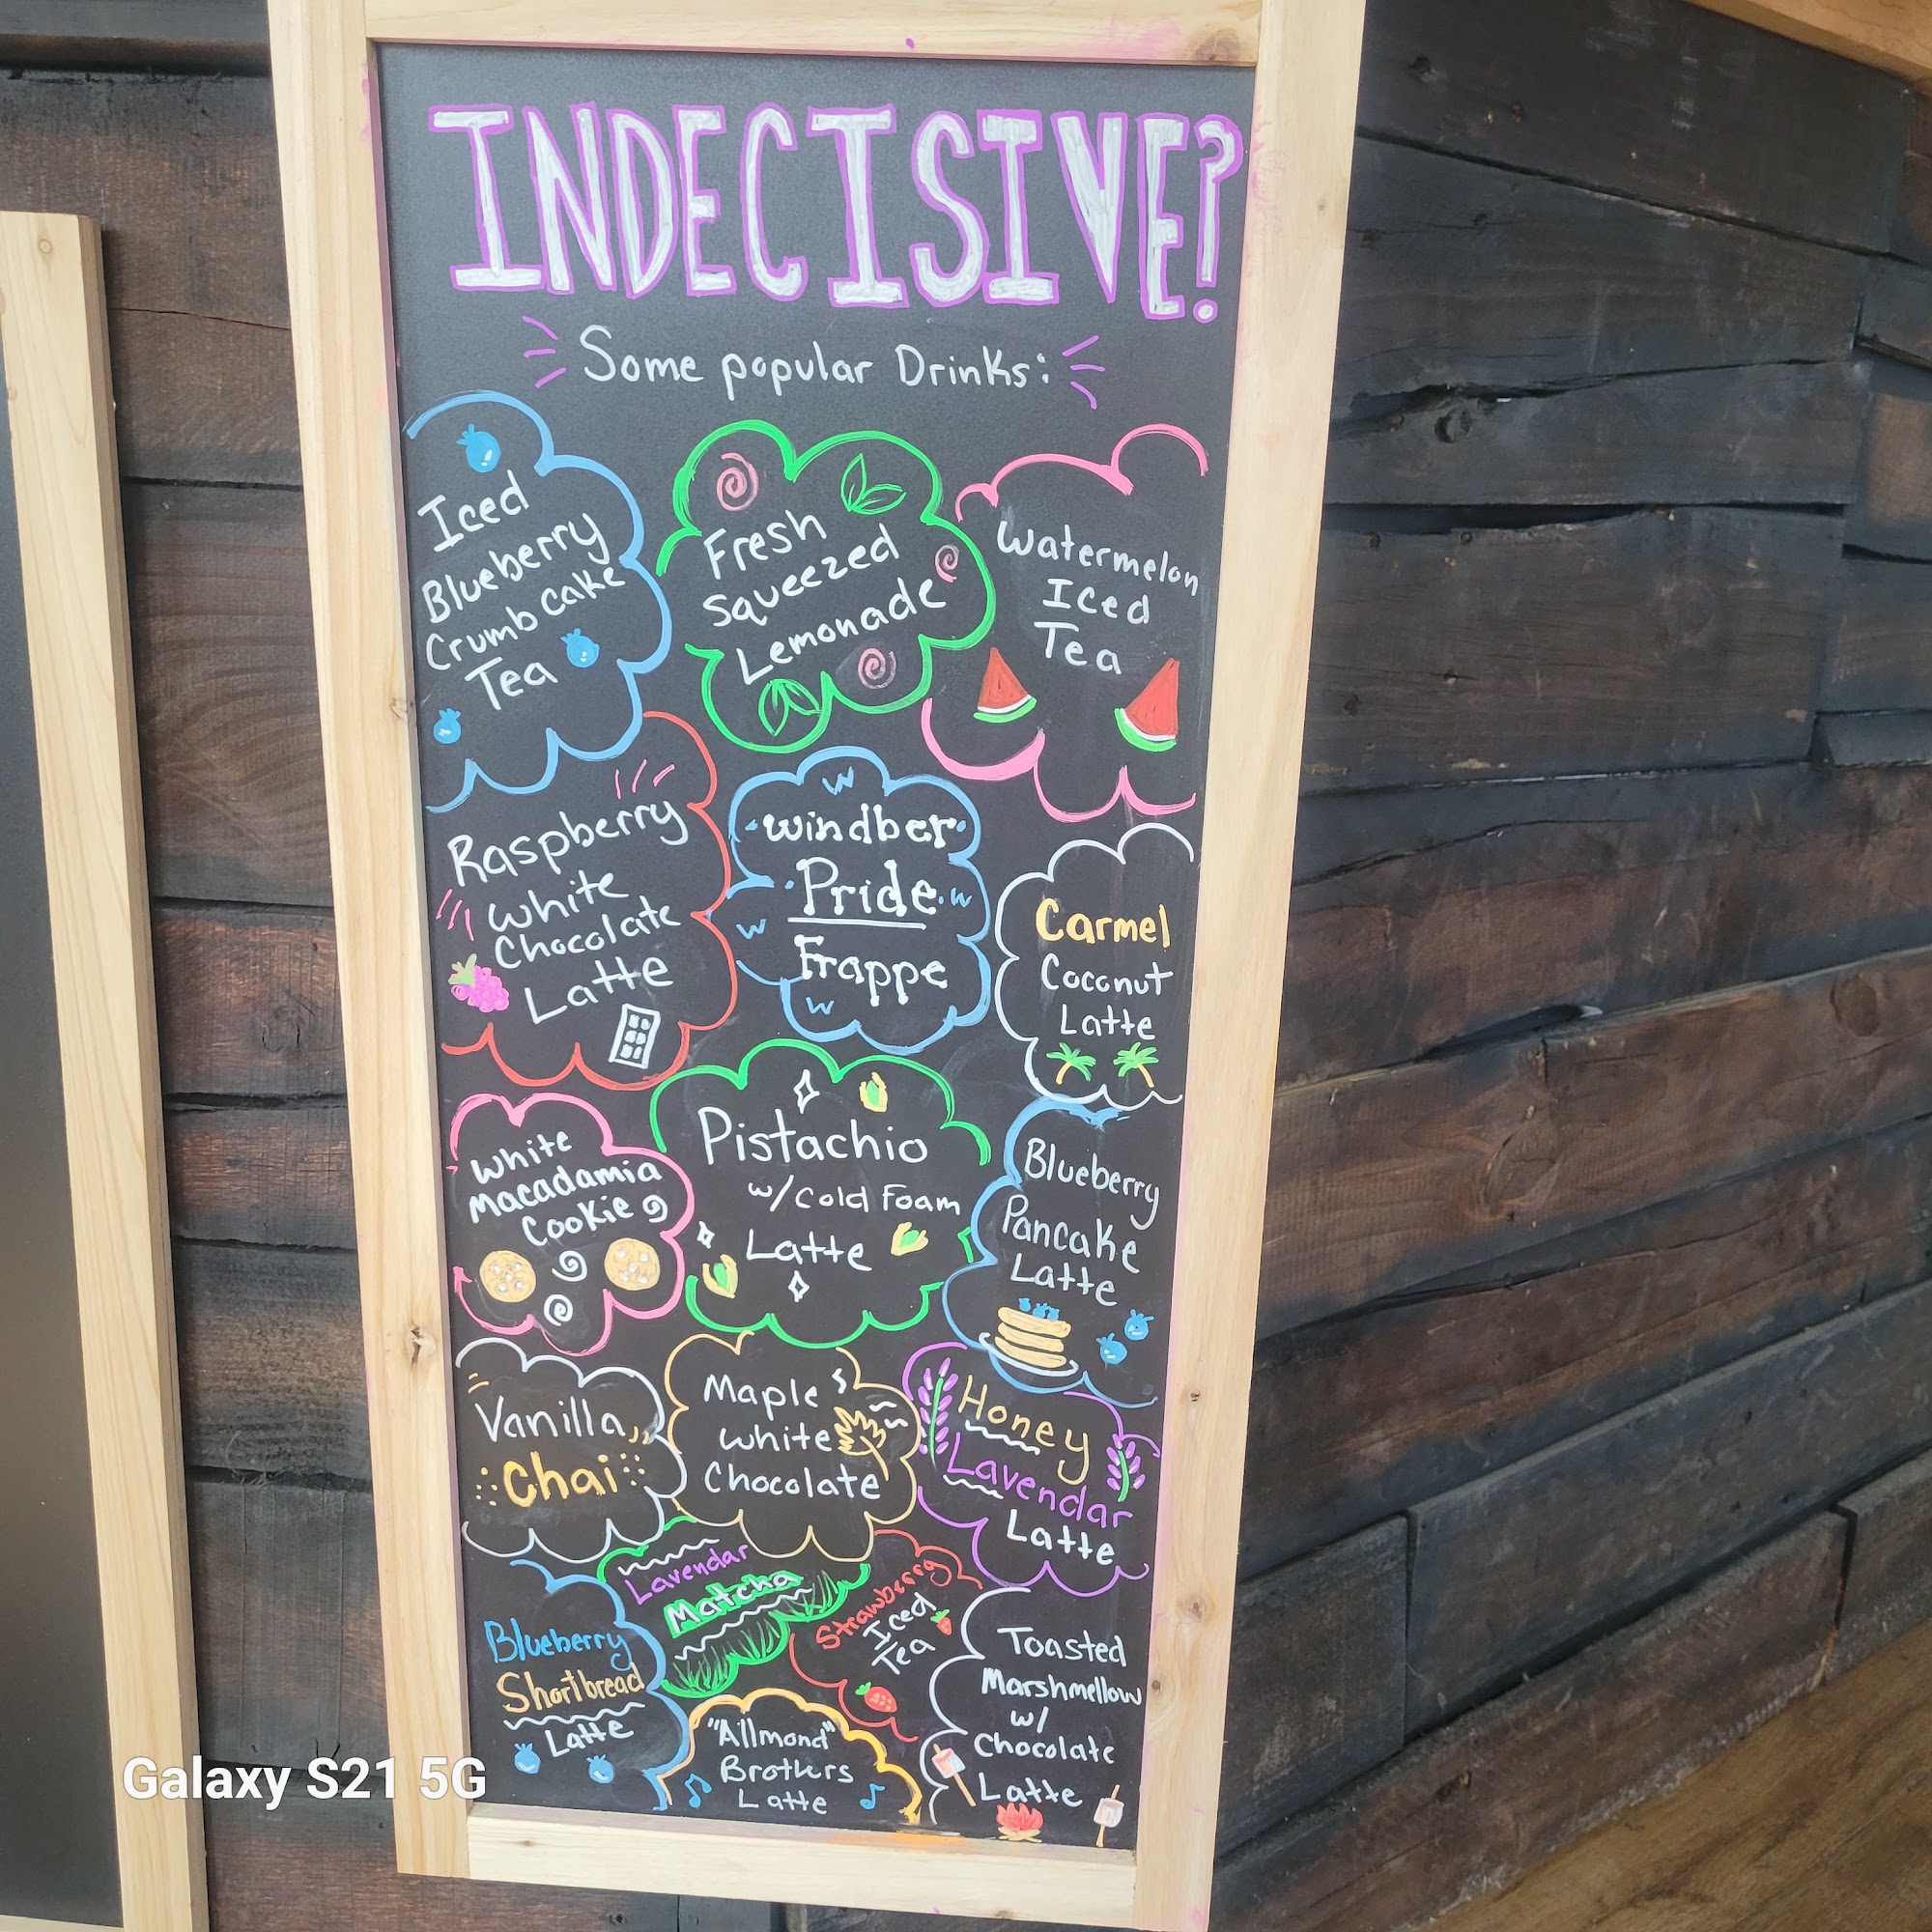 INDECISIVE?
Some popular Drinks:
Iced
Blueberry
Crumb Cake
Tea
Fresh
Squeezed
Lemonade
Watermelon
Iced
Tea
Raspberry
White
Chocolate
Latte
W
windber
Pride
W
W
Frappe
W
Carmel
Coconut
Latte
White
Macadamia
Cookie
Pistachio
w/ Cold Foam
Latte
Blueberry
Pancake
Latte
Vanilla
Chai
Maple
White
Chocolate
Honey
Lavendar
Latte
Lavendar
Matcha
Strawberry
Iced
Tea
Blueberry
Shortbread
Latte
"Allmond"
Brothers
Latte
Toasted
Marshmellow
w/
Chocolate
Latte
Galaxy S21 5G